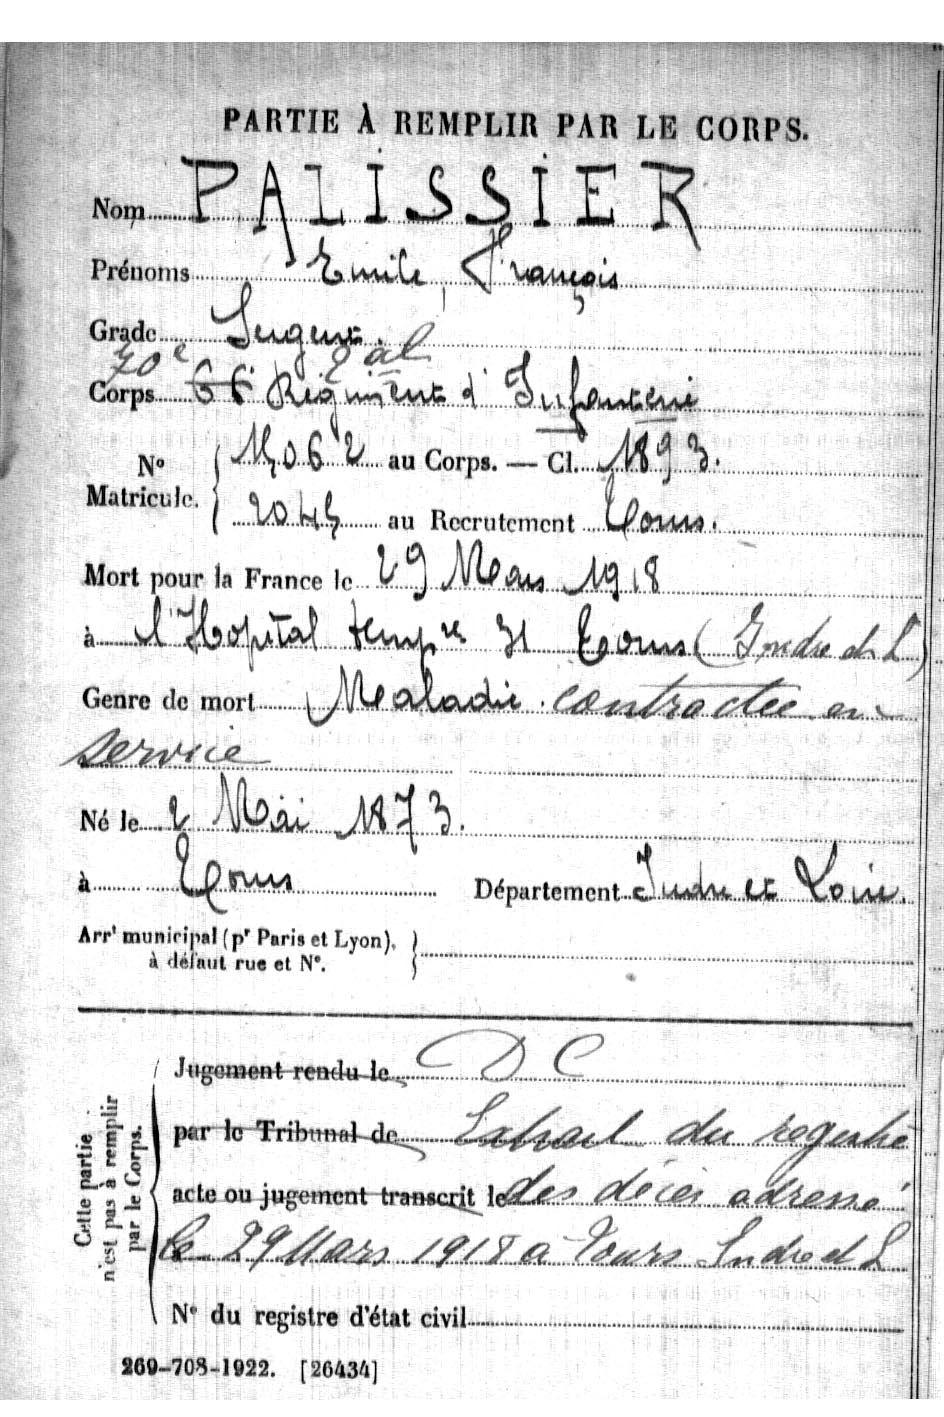 PARTIE À REMPLIR PAR LE CORPS.
Nom PALISSIER
Prénoms Emile, François
Grade Sergent
70e
Corps 66 Régiment d'Infanterie
No Matricule. 15062 au Corps. — Cl. 1893.
2045 au Recrutement Tours.
Mort pour la France le 29 Mars 1918
à l'Hopital tempre 31 Tours (Indre et L)
Genre de mort Maladie contractée en
service
Né le 2 Mai 1873.
à Tours Département Indre et Loire.
Arrt municipal (pr Paris et Lyon),
à défaut rue et No.
Cette partie n'est pas à remplir par le Corps.
Jugement rendu le DC
par le Tribunal de Extrait du registre
acte ou jugement transcrit le des décès adressé
le 29 Mars 1918 à Tours Indre et L
No du registre d'état civil
269-708-1922. [26434]